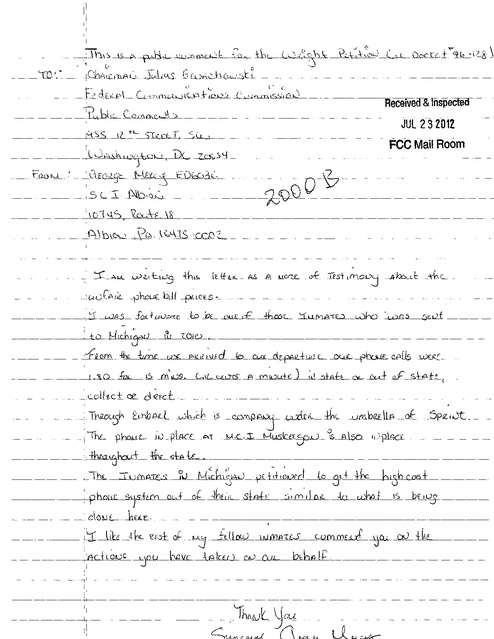 This is a public comment for the Wright Petition (CC Docket #96-128)
TO: Chairman Julius Genachowski
Federal Communications Commission
Public Comments
445 12th STREET, SW
Washington, DC 20554
Received & Inspected
JUL 23 2012
FCC Mail Room
From: George Mercy
SCI Albion
2000 B
10745, Route 18
Albion, Pa. 16475-0002
I am writing this letter as a note of Testimony about the
unfair phone bill prices.
I was fortunate to be one of those Inmates who was sent
to Michigan in 2010.
From the time we arrived to our departure our phone calls were
1.80 for 15 mins. a minute) in state or out of state,
collect or direct.
Through Embark which is company under the umbrella of Sprint.
The phone in place at M.C.I Muskegon is also in place
throughout the state.
The Inmates in Michigan petitioned to get the high cost
phone system out of their state similar to what is being
done here.
I like the rest of my fellow inmates commend you on the
actions you have taken on our behalf
Thank You